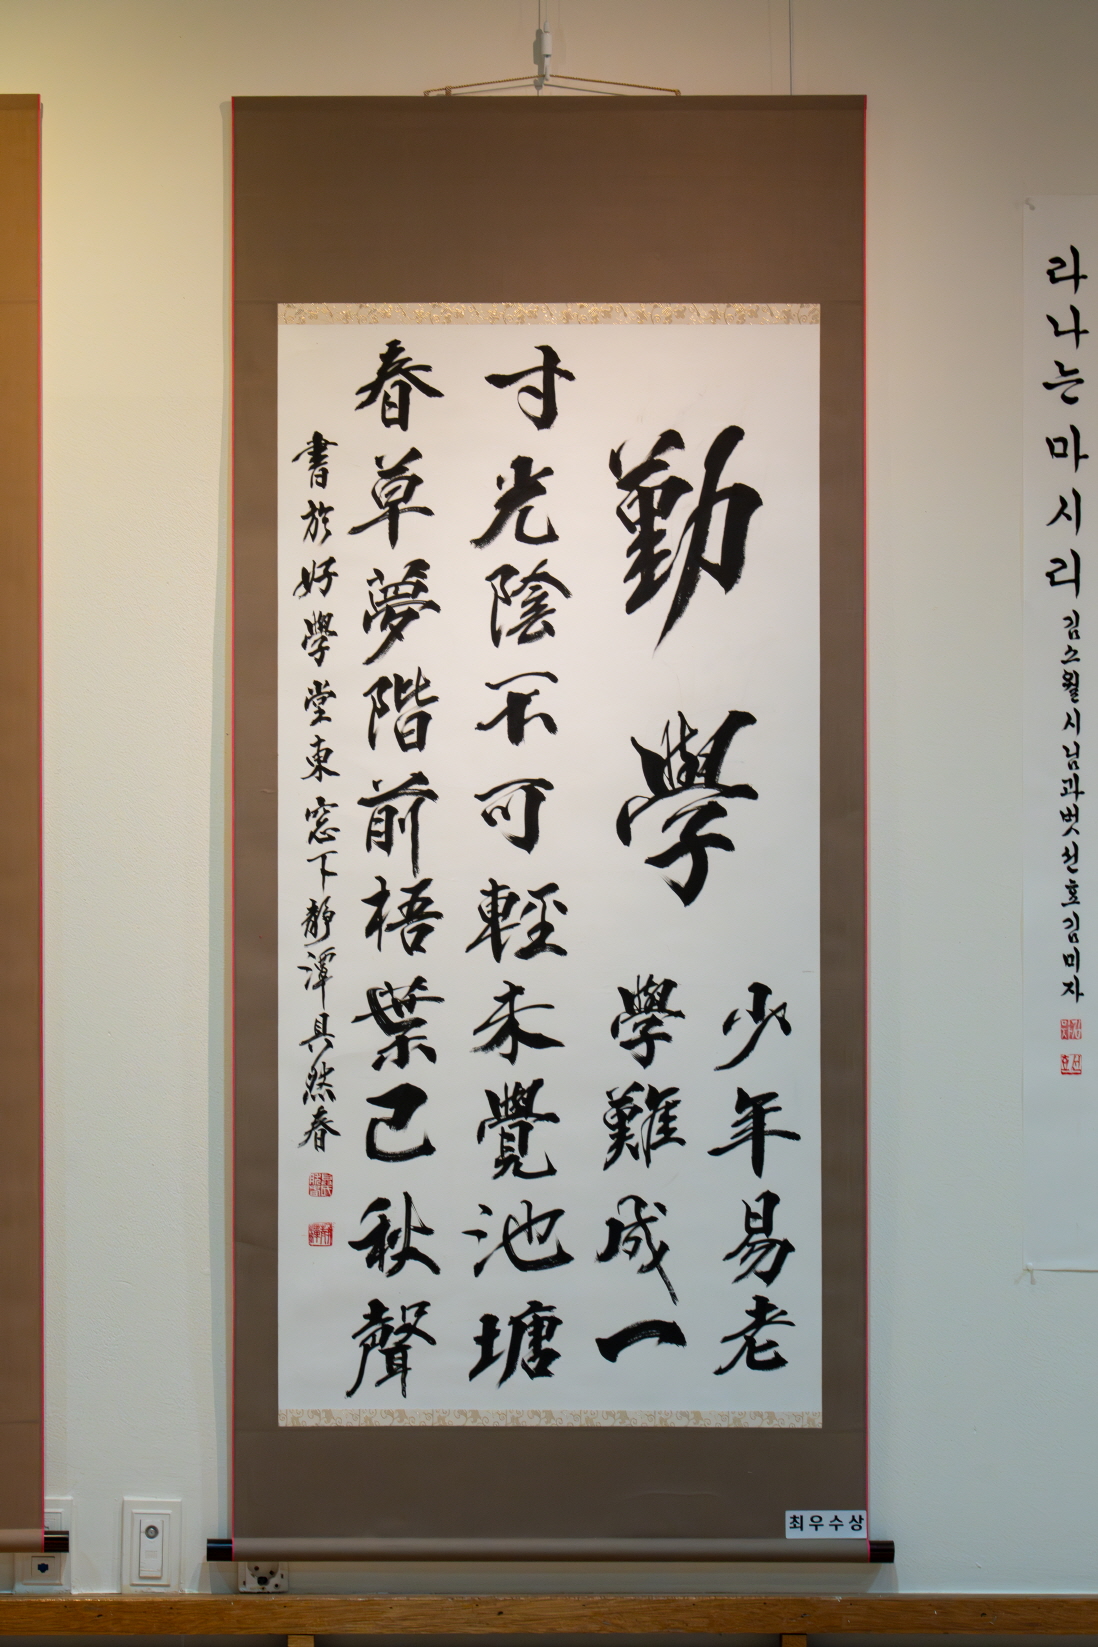 勤學
少年易老
學難成一
寸光陰不可輕未覺池塘
春草夢階前梧葉已秋聲
書於好學堂東窓下靜潭具然春
최우수상
라나는마시리
김소월시님과벗선효김미자